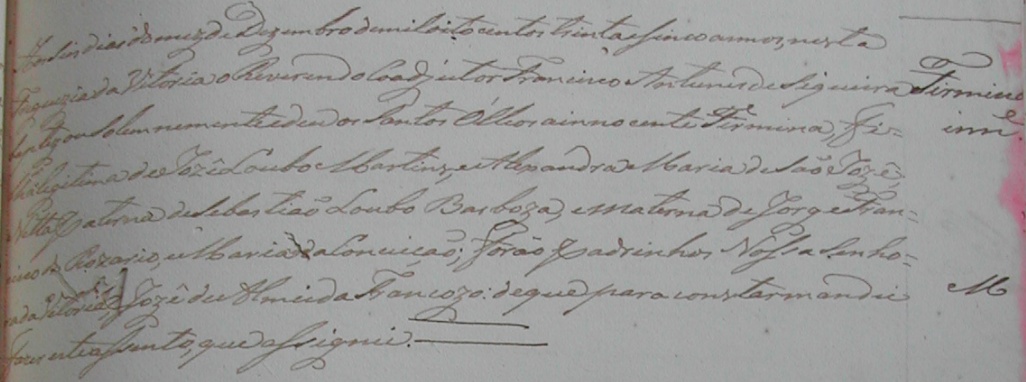 Aos seis dias do mez de Dezembro de mil oito centos trinta e sinco annos, nesta
Freguezia da Vitoria o Reverendo Coadjutor Francisco Antunes de Siqueira
baptizou solemnemente e deu os Santos Olhos a innocente Firmina, fi-
lha legitima de Jozê Loubo Martins, e Alexandra Maria de São Jozê,
Netta paterna de Sebastião Loubo Barboza, e materna de Jorge Fran-
cisco do Rozario, e Maria da Conceicaõ; Foraõ Padrinhos Nossa Senho-
ra da Vitoria, e Jozê de Almeida Francozo: de que para constar mandei
fazer este assento, que assignei.
Firmina
inne.
M